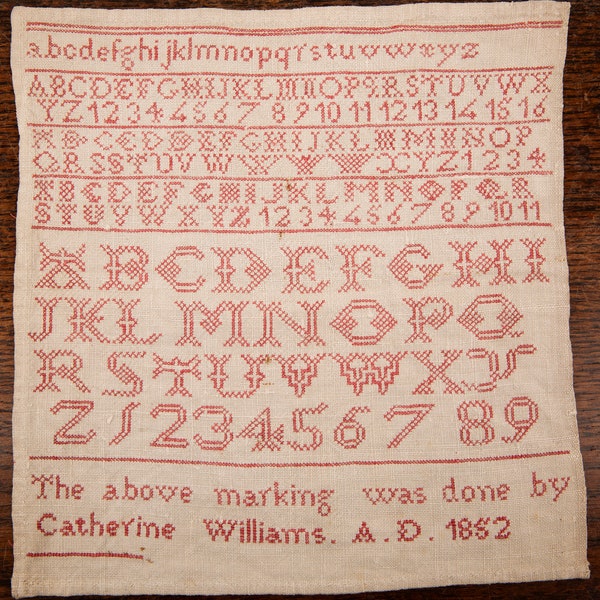 abcdefghijklmnopqrstuvwxyz
ABCDEFGHIJKLMNOPQRSTUVWX
YZ12345678910111213141516
ABCDEFGHIJKLMNOP
QRSSTUVWXYZ1234
ABCDEFGHIJKLMNOPQR
STUVWXYZ1234567891011
ABCDEFGHI
JKLMNOPQ
RSTUVWXY
Z123456789
The above marking was done by
Catherine Williams. A.D. 1852